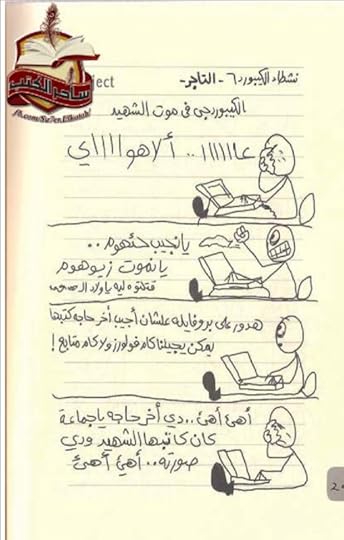 ساحر الكتب
fb.com/Sa7er.Elkotob
ject
نشطاء الكيبورد ٦ - التاجر -
الكيبوردجي في موت الشهيد
عاااااا .. ألاهوااااي
يا نجيب حئهوم ..
يا نموت زيوهوم
قتلتوه ليه يا ولاد
هدور على بروفايله علشان أجيب أخر حاجه كتبها
يمكن يجيلنا كام فولورز ولا كام متابع !
أهئ أهئ .. دي أخر حاجه يا جماعة
كان كاتبها الشهيد ودي
صورته .. أهئ أهئ